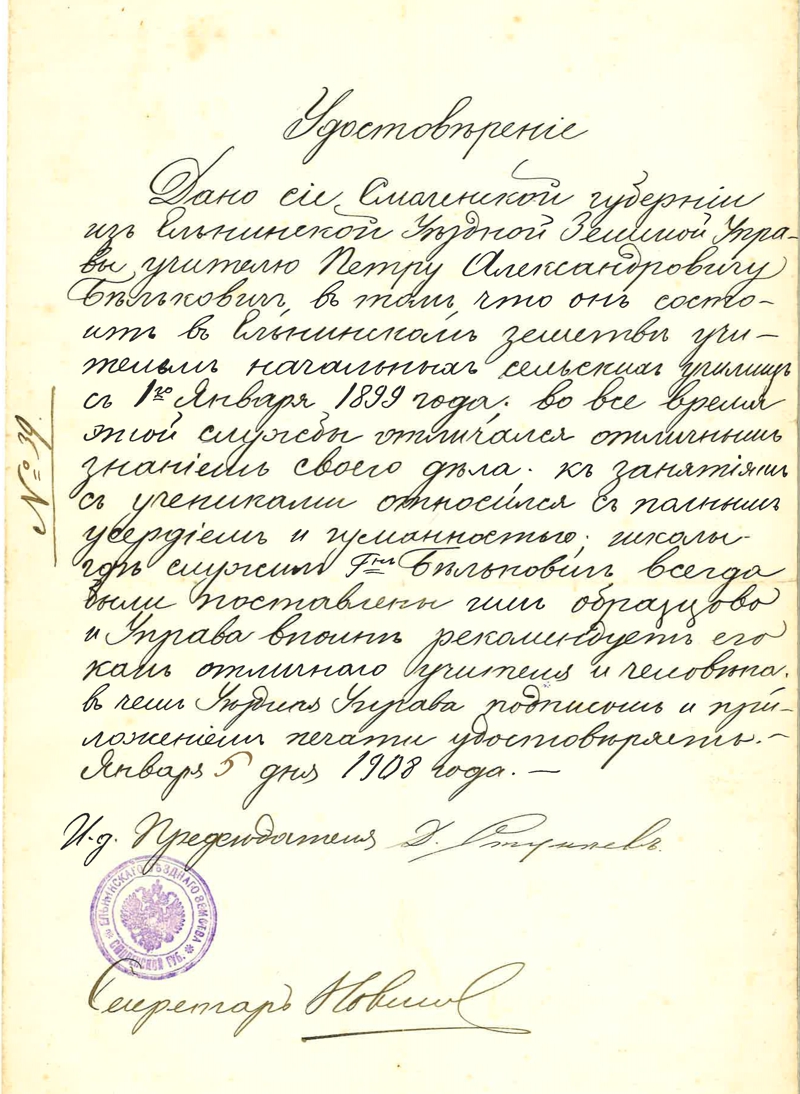 Удостовѣреніе
Дано сіе, Смоленской губерніи
изъ Ельнинской Уѣздной Земской Упра-
вы учителю Петру Александровичу
Бѣльковичъ, въ томъ что онъ состо-
итъ въ Ельнинскомъ земствѣ учи-
телемъ начальныхъ сельскихъ училищъ
съ 1го Января 1899 года. во все время
этой службы отличался отличнымъ
знаніемъ своего дѣла. къ занятіямъ
съ учениками относился съ полнымъ
усердіемъ и гуманностью. школы
гдѣ служилъ Гнъ Бѣльковичъ всегда
были поставлены имъ образцово
и Управа вполнѣ рекомендуетъ его
какъ отличнаго учителя и человѣка.
въ чемъ Уѣздная Управа подписомъ и при-
ложеніемъ печати удостовѣряетъ. —
Января 5 дня 1908 года. —
№ 39.
И.д. Предсѣдателя Д.
ЕЛЬНИНСКАГО УѢЗДНАГО ЗЕМСТВА
СМОЛЕНСКОЙ ГУБ.
Секретарь